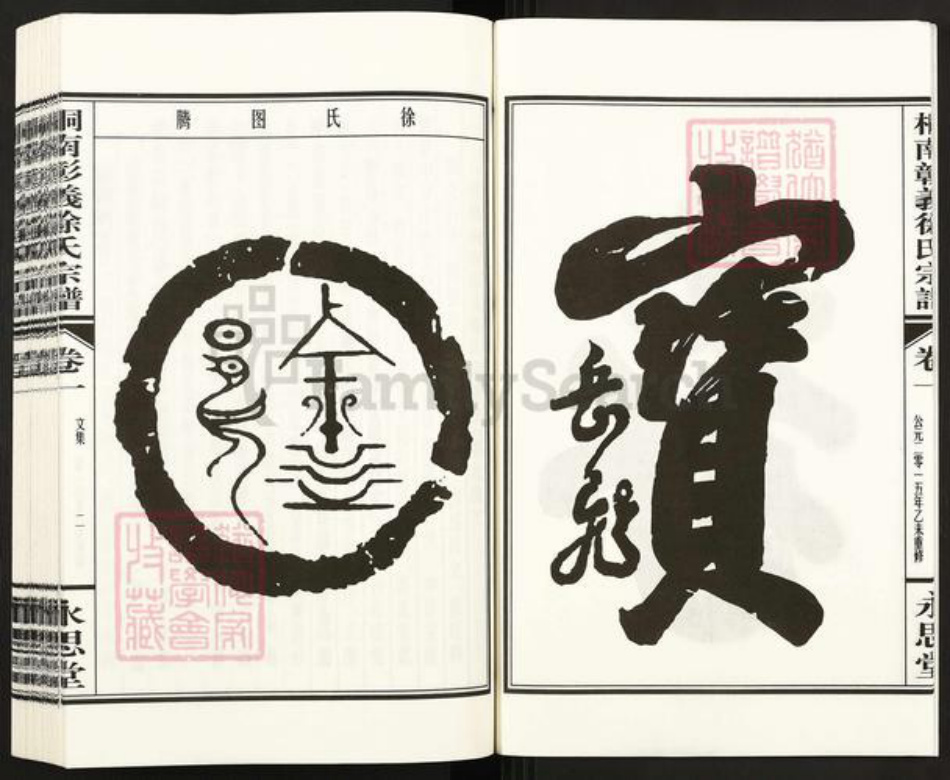 桐南彰義徐氏宗譜
卷一
公元二零一五年乙未重修
永思堂
寶
岳飛
徐氏图腾
桐南彰義徐氏宗譜
卷一
文集
二
永思堂
猶他家
譜學會
收藏
猶他家
譜學會
收藏
FamilySearch